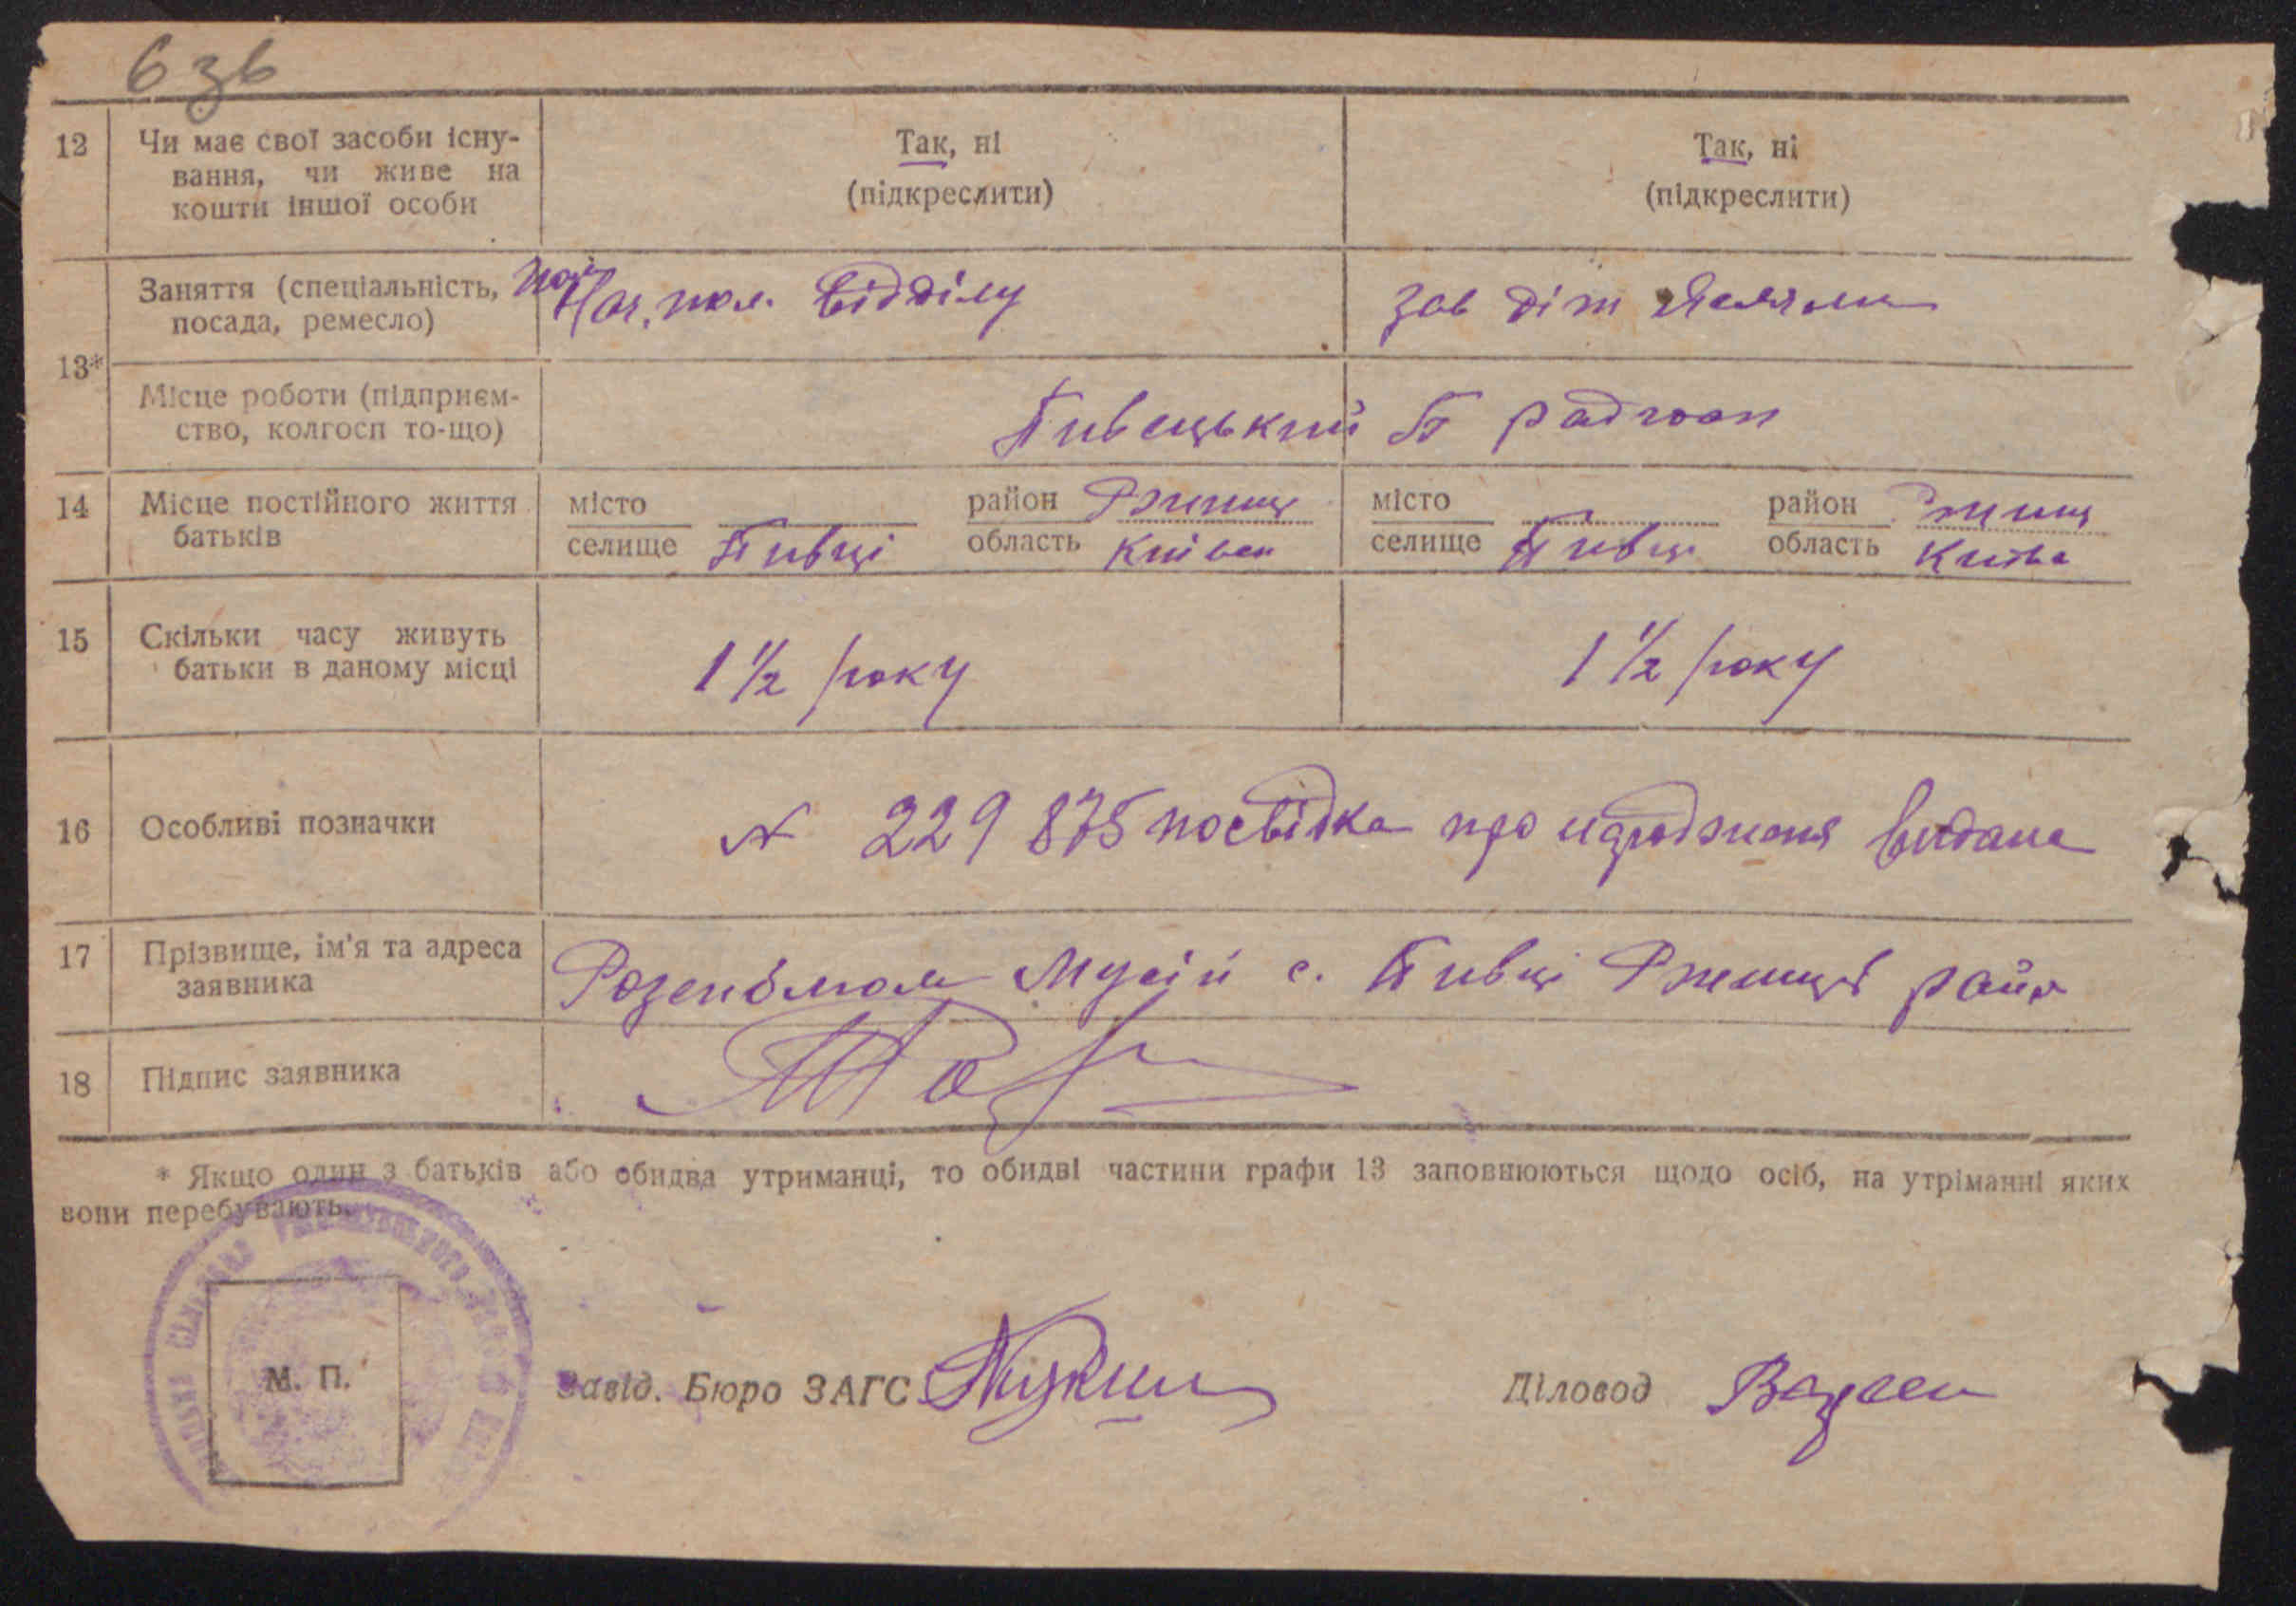 6 зв
12 Чи має свої засоби існу- Так, ні Так, ні
вання, чи живе на (підкреслити) (підкреслити)
кошти іншої особи
Заняття (спеціальність, Нач. пол. відділу зав діт яслями
посада, ремесло)
13*
Місце роботи (підприєм- Пивецький радгосп
ство, колгосп то-що)
14 Місце постійного життя місто район Ржищ місто район Ржищ
батьків селище Пивці область Київськ селище Пивці область Київс
15 Скільки часу живуть 1 ½ року 1 ½ року
батьки в даному місці
16 Особливі позначки № 229 875 посвідка про народження видана
17 Прізвище, ім'я та адреса Розенблюм Мусій с. Пивці Ржищів район
заявника
18 Підпис заявника
* Якщо один з батьків або обидва утриманці, то обидві частини графи 13 заповнюються щодо осіб, на утріманні яких
вони перебувають.
М. П. Завід. Бюро ЗАГС Діловод